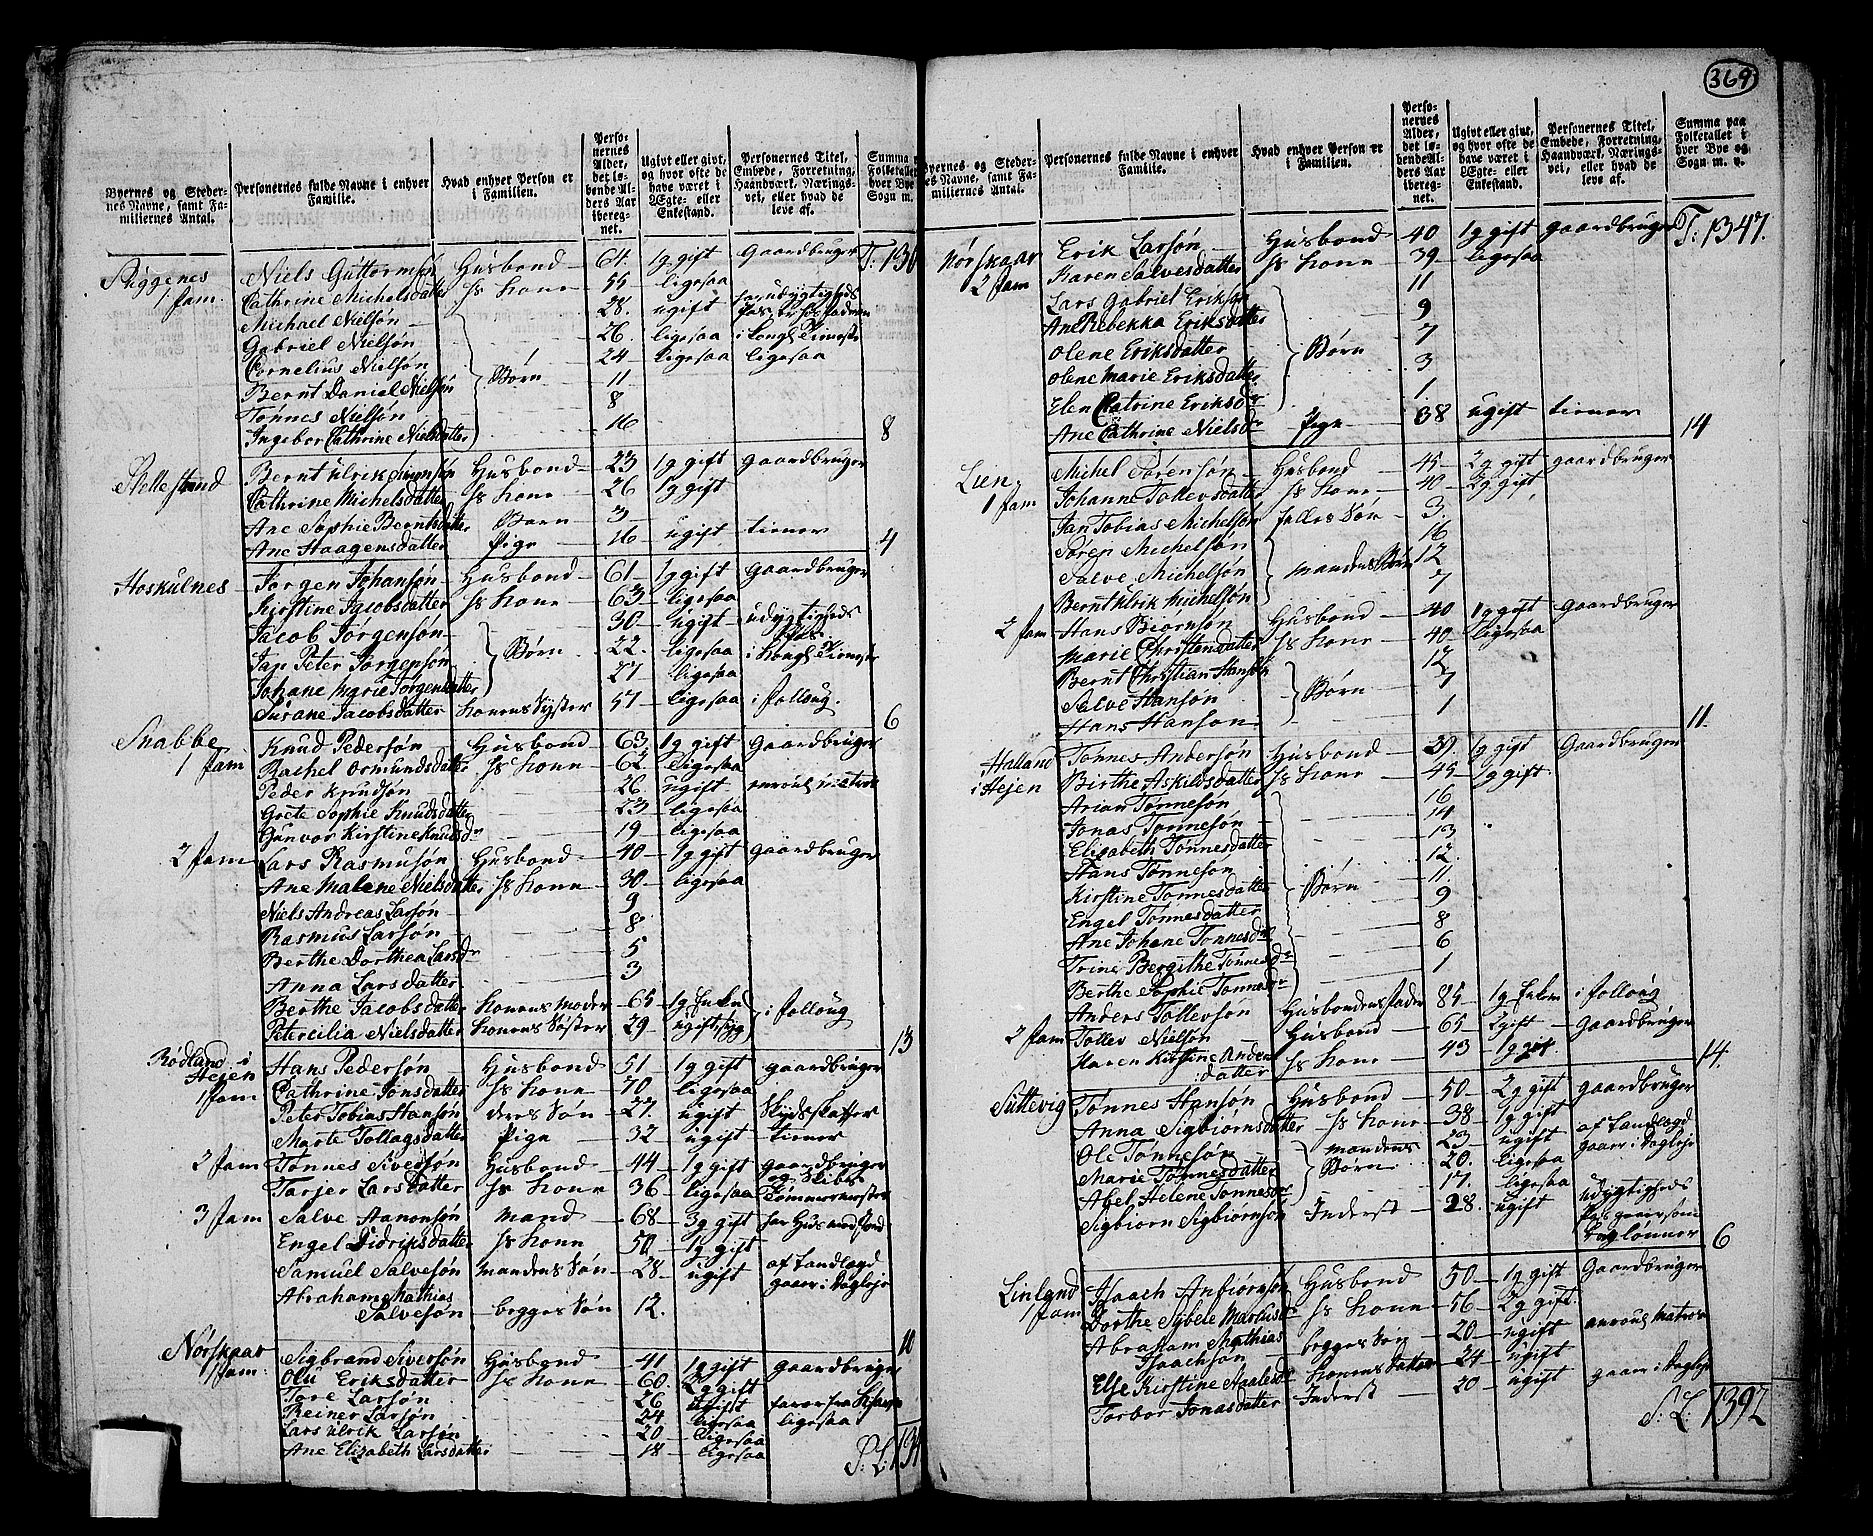 369
Byernes og Stedernes Navne, samt Familiernes Antal.
Personernes fulde Navne i enhver Familie.
Hvad enhver Person er i Familien.
Personernes Alder, det løbende Alders Aar iberegnet.
Ugivt eller givt, og hvor ofte de have været i Ægte- eller Enkestand.
Personernes Titel, Embede, Forretning, Haandværk, Næringsvei, eller hvad de leve af.
Summa
Folketallet
hver Bye
Sogn m.
Niels Guttormsøn Husbond 61. 1 g gift Gaardbruger
1 fam. Cathrine Michelsdatter hs Kone 55 ligesaa
Michael Nielsøn 28. ugift
Gabriel Nielsøn 26. ligesaa
Cornelius Nielsøn 24 ligesaa ligesaa
Bernt Daniel Nielsøn Børn 11
Tønnes Nielsøn 8
Ingebor Cathrine Nielsdatter 16 8
Bernt Ulrik Husbond 23 1 g gift Gaardbruger
Cathrine Michelsdatter hs Kone 26 1 g gift
Ane Sophie Berntsdatter Barn 3
Ane Haagensdatter Pige 16 ugift tiener 4
Hoskulnes Jørgen Johansøn Husbond 61 1 g gift Gaardbruger
Kirstine Jacobsdatter hs Kone 63 ligesaa
Jacob Jørgensøn 30 ugift udygtigheds
Jan Peter Jørgensøn Børn 22. ligesaa
Johane Marie Jørgensdatter 27 ligesaa
Susane Jacobsdatter Konens Syster 57 ligesaa 6
Snabbe Knud Pedersøn Husbond 63 1 g gift Gaardbruger
1 fam Rachel Ormundsdatter hs Kone 62 ligesaa
Peder Knudsøn 26 ugift
Grete Sophie Knudsdatter 23 ligesaa
Gunvor Kirstine Knudsdr 19 ligesaa
2 fam Lars Rasmusøn Husbond 40 1 g gift gaardbruger
Ane Malene Nielsdatter hs Kone 30 ligesaa
Niels Andreas Larsøn 9
Rasmus Larsøn 8
Berthe Dorthea Larsdr 5
Anna Larsdatter 3
Berthe Jacobsdatter Konens Moder 65 1 g Enke
Petercilia Nielsdatter Konens Søster 29 ugift 13
Rødland i Hejen Hans Pedersøn Husbond 51 1 g gift gaardbruger
1 fam Cathrine Jonsdatter hs Kone 70 ligesaa
Peter Tobias Hansøn deres Søn 27. ugift Skydsskaffer
Marte Tollagsdatter Pige 32 ugift tiener
2 fam Tønnes Siversøn Husbond 44 1 g gift gaardbruger
Tarjer Larsdatter hs Kone 36 ligesaa og Skibs Tømmermester
3 fam Salve Aanonsøn Mand 68 3 g gift har Huusmands
Engel Didriksdatter hs Kone 50 1 g gift
Samuel Salvesøn Mandens Søn 28 ugift af Landlagd gaaer i Dagleje
Abraham Mathias
Salvesøn begges Søn 12. 10
Nørskaar Sigbrand Siversøn Husbond 41 1 g gift gaardbruger
1 fam. Olu Eriksdatter hs Kone 60 2 g gift
Tore Larsøn 26 ugift
Reiner Larsøn 24 ligesaa ligesaa
Lars Ulrik Larsøn 20 ligesaa
Ane Elizabeth Larsdatter 18 ligesaa
Byernes og Stedernes Navne, samt Familiernes Antal.
Personernes fulde Navne i enhver Familie.
Hvad enhver Person er i Familien.
Personernes Alder, det løbende Alders Aar iberegnet.
Ugivt eller givt, og hvor ofte de have været i Ægte- eller Enkestand.
Personernes Titel, Embede, Forretning, Haandværk, Næringsvei, eller hvad de leve af.
Summa paa Folketallet i hver Bye og Sogn m. v.
Nørskaar Erik Larsøn Husbond 40 1 g gift gaardbruger T: 1347.
2 fam Karen Salvesdatter hs Kone 39 ligesaa
Lars Gabriel Eriksøn 11
Ane Rebekka Eriksdatter 9
Olene Eriksdatter Børn 7
Olene Marie Eriksdatter 3
Elen Catrine Eriksdr 1
Ane Cathrine Nielsdr Pige 38 ugift tiener 14
Lien Michel Sørensøn Husbond 45 2 g gift gaardbruger
1 fam Johanne Tollevsdatter hs Kone 40 2 g gift
Jan Tobias Michelsøn fælles Søn 3.
Søren Michelsøn 16
Salve Michelsøn Mandens Børn 12
Bernt Ulrik Michelsøn 7
2 fam Hans Biørnsøn Husbond 40 1 g gift Gaardbruger
Marie Christensdatter hs Kone 40 ligesaa
Bernt Christian Hansøn 12
Salve Hansøn Børn 7
Hans Hansøn 1 11.
Holland i Hejen Tønnes Andersøn Husbond 39. 1 g gift Gaardbruger
Birthe Askildsdatter hs Kone 45 1 g gift
Arian Tønnesøn 16
Jonas Tønnesøn 14
Elizabeth Tønnesdatter 13
Hans Tønnesøn 12.
Kirstine Tønnesdatter Børn 11.
Engel Tønnesdatter 9
Ane Johane Tønnesdat 8
Trine Bergithe Tønnesdr 6
Berthe Sophie Tønnesdr 1
Anders Tollevsøn Husbondens fader 85 1 g
2 fam Tollev Nielsøn Husbond 65 2 gift gaardbruger
Karen Kirstine Anders
datter hs Kone 43 1 g gift 14.
Suttevig Tønnes Hansøn Husbond 50 2 g gift gaardbruger
Anna Sigbiørnsdatter hs Kone 38 1 g gift
Ole Tønnesøn Mandens 23 ugift af Landlagd gaaer i Dagleje
Marie Tønnesdatter Børn 20. ligesaa
Abel Helene Tønnesdr 17. ligesaa
Sigbiørn Sigbiørnsøn Inderst 28. ugift udygtigheds Pas gaaer som Daglønner 6
Linland Isaach Anbiørnsøn Husbond 50 1 g gift Gaardbruger
1 fam Dorthe Sybele Marcusdr hs Kone 56 2 g gift.
Abraham Mathias
Isaachsøn begges Søn 20 ugift
Else Kirstine Konens datter 24 ugift
Torbor Jonasdatter Inderst 20 ugift gaaer i Dagleje
S: L: 1392